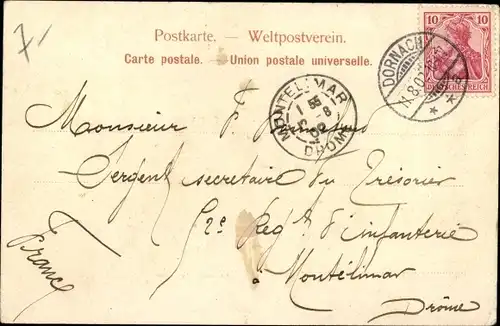 7-
Postkarte. — Weltpostverein.
Carte postale. — Union postale universelle.
10 10
DEUTSCHES REICH
DORNACH
MONTELIMAR
DROME
Monsieur F.
Sergent secretaire du Trésorier
52e Regt d'infanterie
Montélimar
Drôme
France